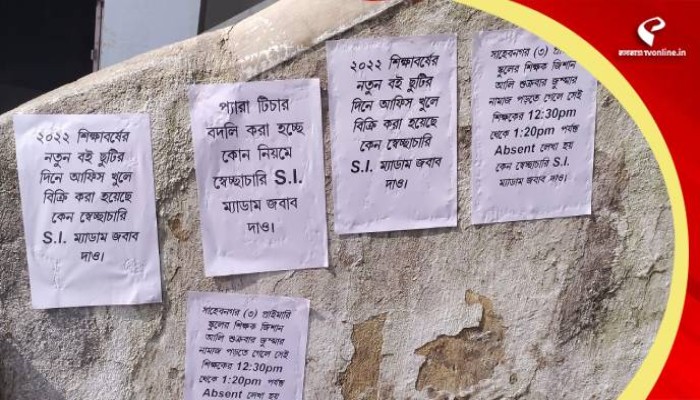 ২০২২ শিক্ষাবর্ষের
নতুন বই ছুটির
দিনে আফিস খুলে
বিক্রি করা হয়েছে
কেন স্বেচ্ছাচারি
S.I. ম্যাডাম জবাব
দাও।
প্যারা টিচার
বদলি করা হচ্ছে
কোন নিয়মে
স্বেচ্ছাচারি S.I.
ম্যাডাম জবাব
দাও।
২০২২ শিক্ষাবর্ষের
নতুন বই ছুটির
দিনে আফিস খুলে
বিক্রি করা হয়েছে
কেন স্বেচ্ছাচারি
S.I. ম্যাডাম জবাব
দাও।
সাহেবনগর (৩) প্রাইমারি
স্কুলের শিক্ষক জিশান
আলি শুক্রবার জুম্মার
নামাজ পড়তে গেলে সেই
শিক্ষকের 12:30pm
থেকে 1:20pm পর্যন্ত
Absent লেখা হয়
কেন স্বেচ্ছাচারি S.I.
ম্যাডাম জবাব দাও।
সাহেবনগর (৩) প্রাইমারি
স্কুলের শিক্ষক জিশান
আলি শুক্রবার জুম্মার
নামাজ পড়তে গেলে সেই
শিক্ষকের 12:30pm
থেকে 1:20pm পর্যন্ত
Absent লেখা হয়
কলকাতা tvonline.in